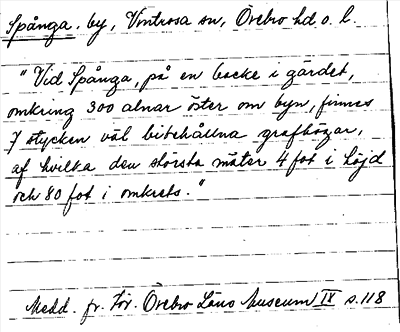 Spånga, by, Vintrosa sn, Örebro hd o. l.
"Vid Spånga, på en backe i gärdet,
omkring 300 alnar öster om byn, finnes
7 stycken väl bibehållna grafhögar,
af hvilka den största mäter 4 fot i höjd
och 80 fot i omkrets."
Medd. fr. För. Örebro Läns Museum IV s. 118